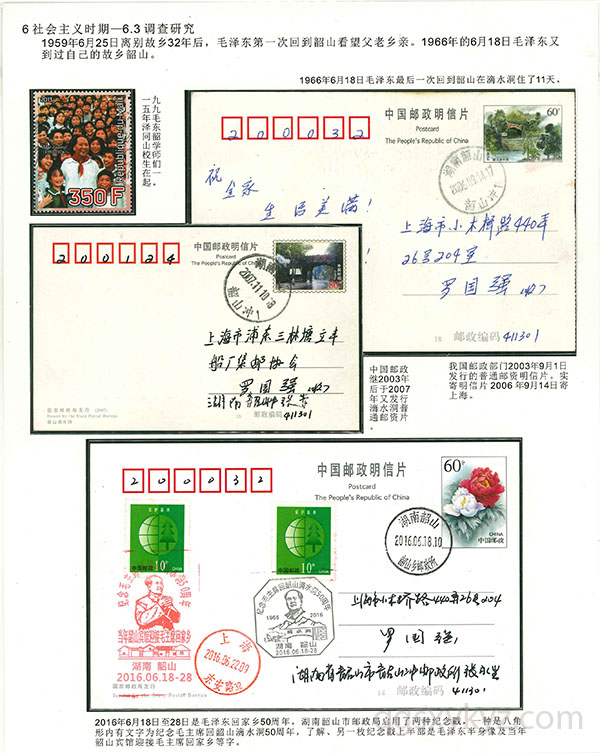 6 社会主义时期—6.3 调查研究
1959年6月25日离别故乡32年后，毛泽东第一次回到韶山看望父老乡亲。1966年的6月18日毛泽东又
到过自己的故乡韶山。
1966年6月18日毛泽东最后一次回到韶山在滴水洞住了11天。
2013
République du Mali
350 F
一九五九年毛泽东同韶山学校师生们在一起。
200032
中国邮政明信片
Postcard
The People's Republic of China
60分
湖南韶山
祝
全家
生活美满！
上海市小木桥路440弄
26号204室
罗国强
邮政编码 411301
200124
中国邮政明信片
Postcard
The People's Republic of China
湖南
2007.11.10.18
韶山冲1
上海市浦东三林塘立丰
船厂集邮协会
罗国强
国家邮政局发行
邮政编码 411301
中国邮政
继2003年
后于2007
年又发行
滴水洞普
通邮资片
我国邮政部门2003年9月1日
发行的普通邮资明信片。实
寄明信片 2006 年9月14日寄
上海。
200032
中国邮政明信片
Postcard
The People's Republic of China
60分
中国邮政
CHINA
中国邮政
10分
中国邮政
10分
湖南韶山
2016.06.18.10
当年韶山宾馆迎接毛主席回家乡
湖南 韶山
2016.06.18-28
国家邮政局发行
上海
2016.06.22.09
纪念毛主席回韶山滴水洞50周年
1966 2016
湖南 韶山
2016.06.18-28
上海市小木桥路440弄26号204
罗国强
邮政编码 411301
2016年6月18日至28日是毛泽东回家乡50周年。湖南韶山市邮政局启用了两种纪念戳，一种是八角
形内有文字为纪念毛主席回韶山滴水洞50周年，了解、另一枚纪念戳上半部是毛泽东半身像及当年
韶山宾馆迎接毛主席回家乡等字。